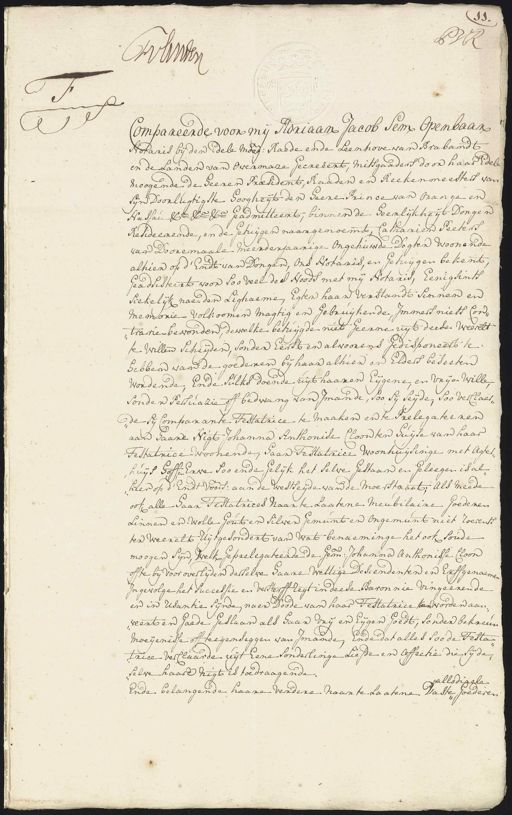 11.
F
Compareerde voor mij Adriaan Jacob Sem Openbaar
Notaris bij den Edele Mog: Raede ende Leenhove van Brabandt
en de Landen van Overmaze Gecreëert, mitsgaders door haar Edele
moogende de Heeren President, Raaden en Reekenmeesters van
Sijn Doorlugtigste Hoogheijt den Heere Prince van Orange en
Nassau Geadmitteert, binnen de Heerlijkheijt Dongen
Resideerende, ende getuijgen naargenoemt, Catharina Peeters
van Dooremaale meerderjaarige Ongehuwde Dogter woonende
alhier op 't Eijndt van Dongen, Ons Notaris, en Getuijgen bekent,
Geadsisteert voor Soo veel des Noods met mij Notaris, Eenigsints
Siekelijk naar den Lighaeme, Egter haar verstandt Sinnen en
Memorie volkoomen magtig en Gebruijkende, Immers niets Con
trarie bevonden, dewelke betuijgde niet geerne uijt deese Weerelt
te willen Scheijden, Sonder Eerst en alvoorens Gedisponeert te
hebben van de goederen bij haar alhier en Elders beseeten
wordende, Ende Sulks doende uijt haaren Eijgene, en Vrije Wille,
Sonder Persuasie off bedwang van Imande, Soo Sij Seijde, Soo verclaer
de Sij Comparante Testatrice te maaken en te Prelegateeren
aan haare Nigt Johanna Anthonisse Cloon ten huijse van haar
Testatrice woonende, haar Testatrice woonhuijsinge met agter
huijs Hoff Erve Soo ende gelijk het Selve gestaan en geleegen is al
hier op 't Eijndt voors: aan de westzijde van de Moer Staat, Als meede
ook alle haar Testatrices Naar te Laatene Meubilaire goederen
Linnen en Wolle, Gout en Silver Gemunt en Ongemunt niet tweerst
ter Weerelt Uijtgesondert van wat benaeminge het ook Soude
moogen Sijn, welk geprelegateerde de gem: Johanna Anthonisse Cloon
ofte bij vooroverlijden deselve haare wettige Descendenten en Erffgenaamen
Ingevolge het Successie en versterffregt in deese Baronnie vingeerende
en in Usantie Sijnde, naer Doode van haar Testatrice te aanvaarden,
weert en goede gestaan als haar vrij en Eijgen goedt, Sonder bekreun
moeijenisse off teegenseggen van Imande, Ende dat alles Soo de Testa
trice verclaarde uijt Eene Sonderlinge Liefde en Affectie die Sij de
Selve haare Nigt is toedraagende
Ende belangende haare verdere Naar te Laatene Vaste goederen
allodiaele